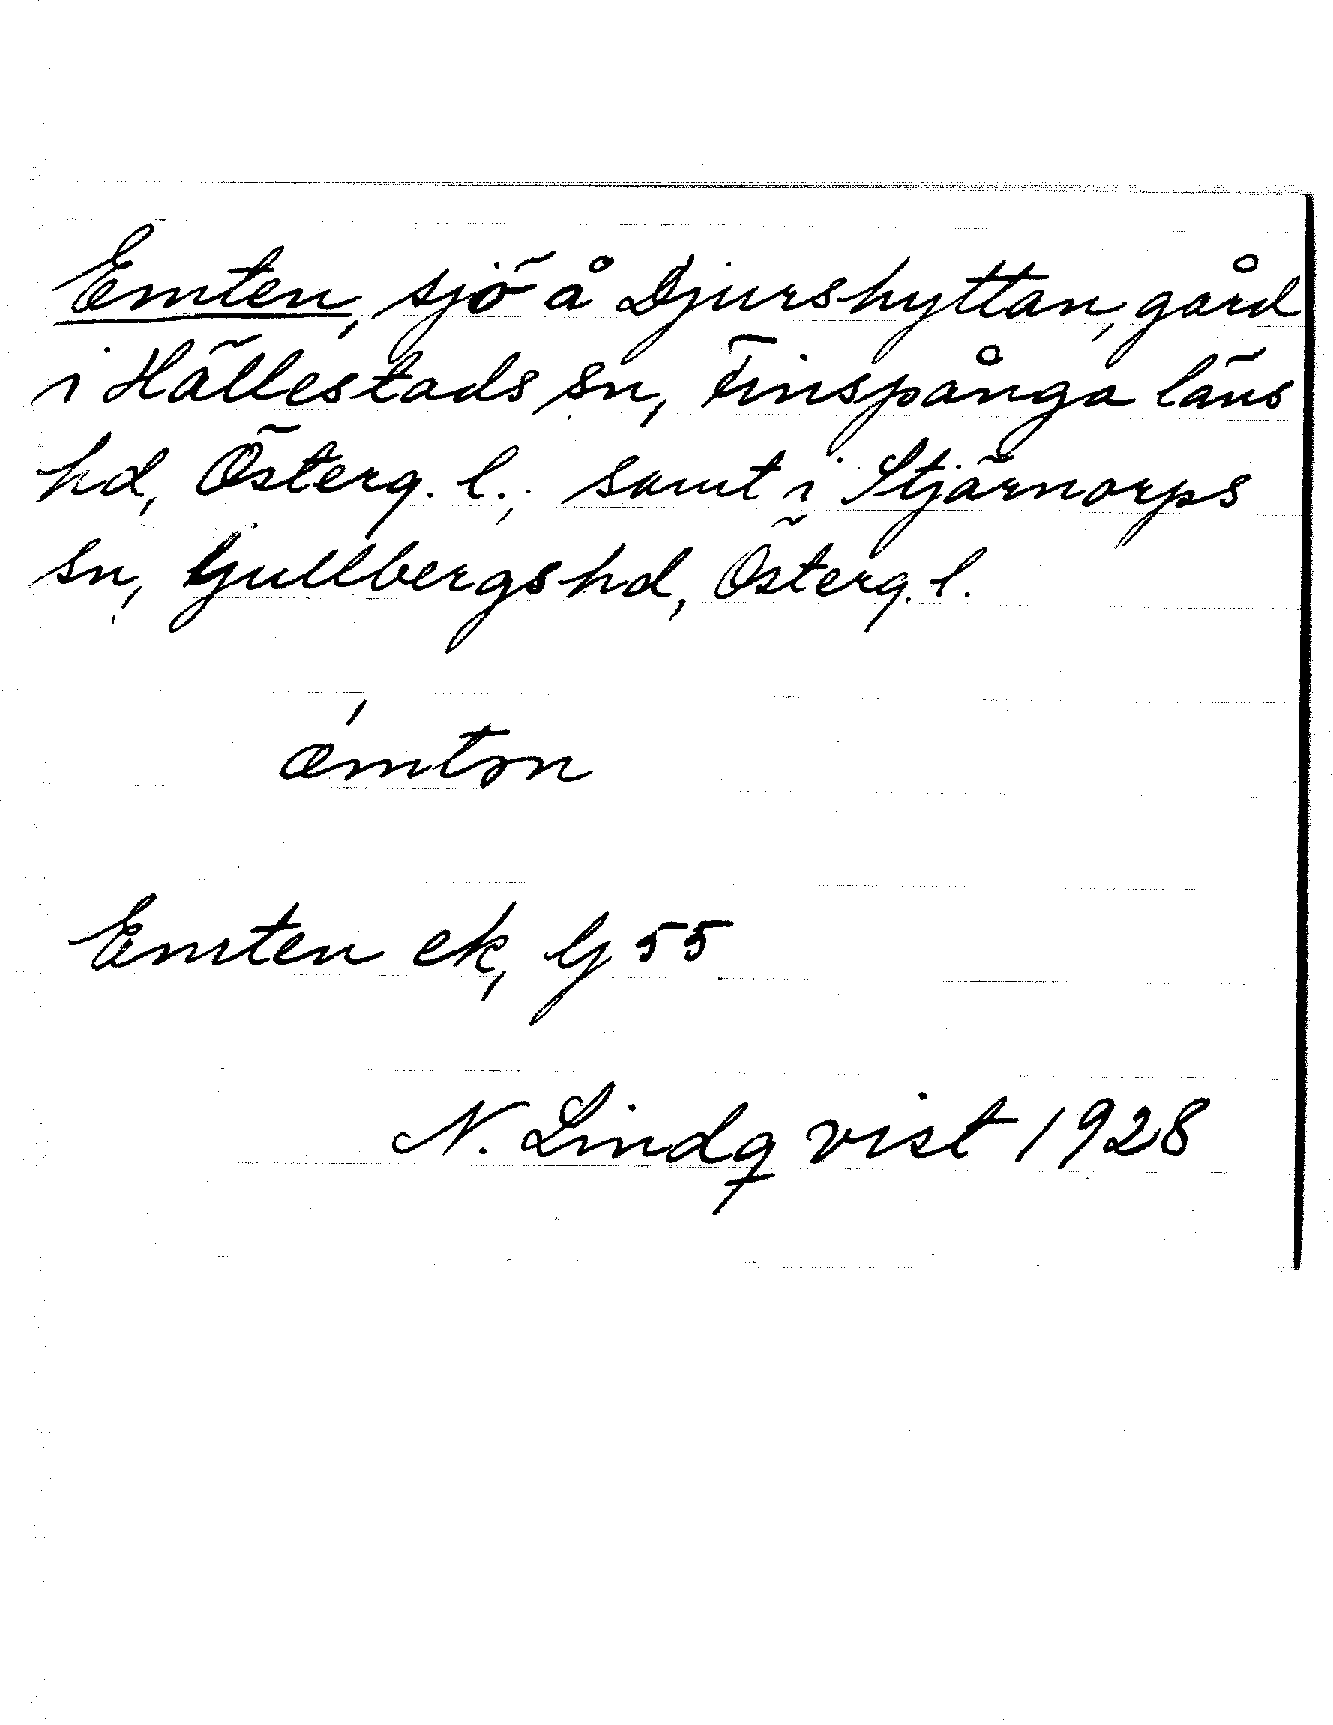 Emten, sjö å Djurshyttan, gård
i Hällestads sn, Finspånga läns
hd, Österg. l.; samt i Stjärnorps
sn, Gullbergs hd, Österg. l.
ǽmtən
Emten ek, G 55
N. Lindqvist 1928